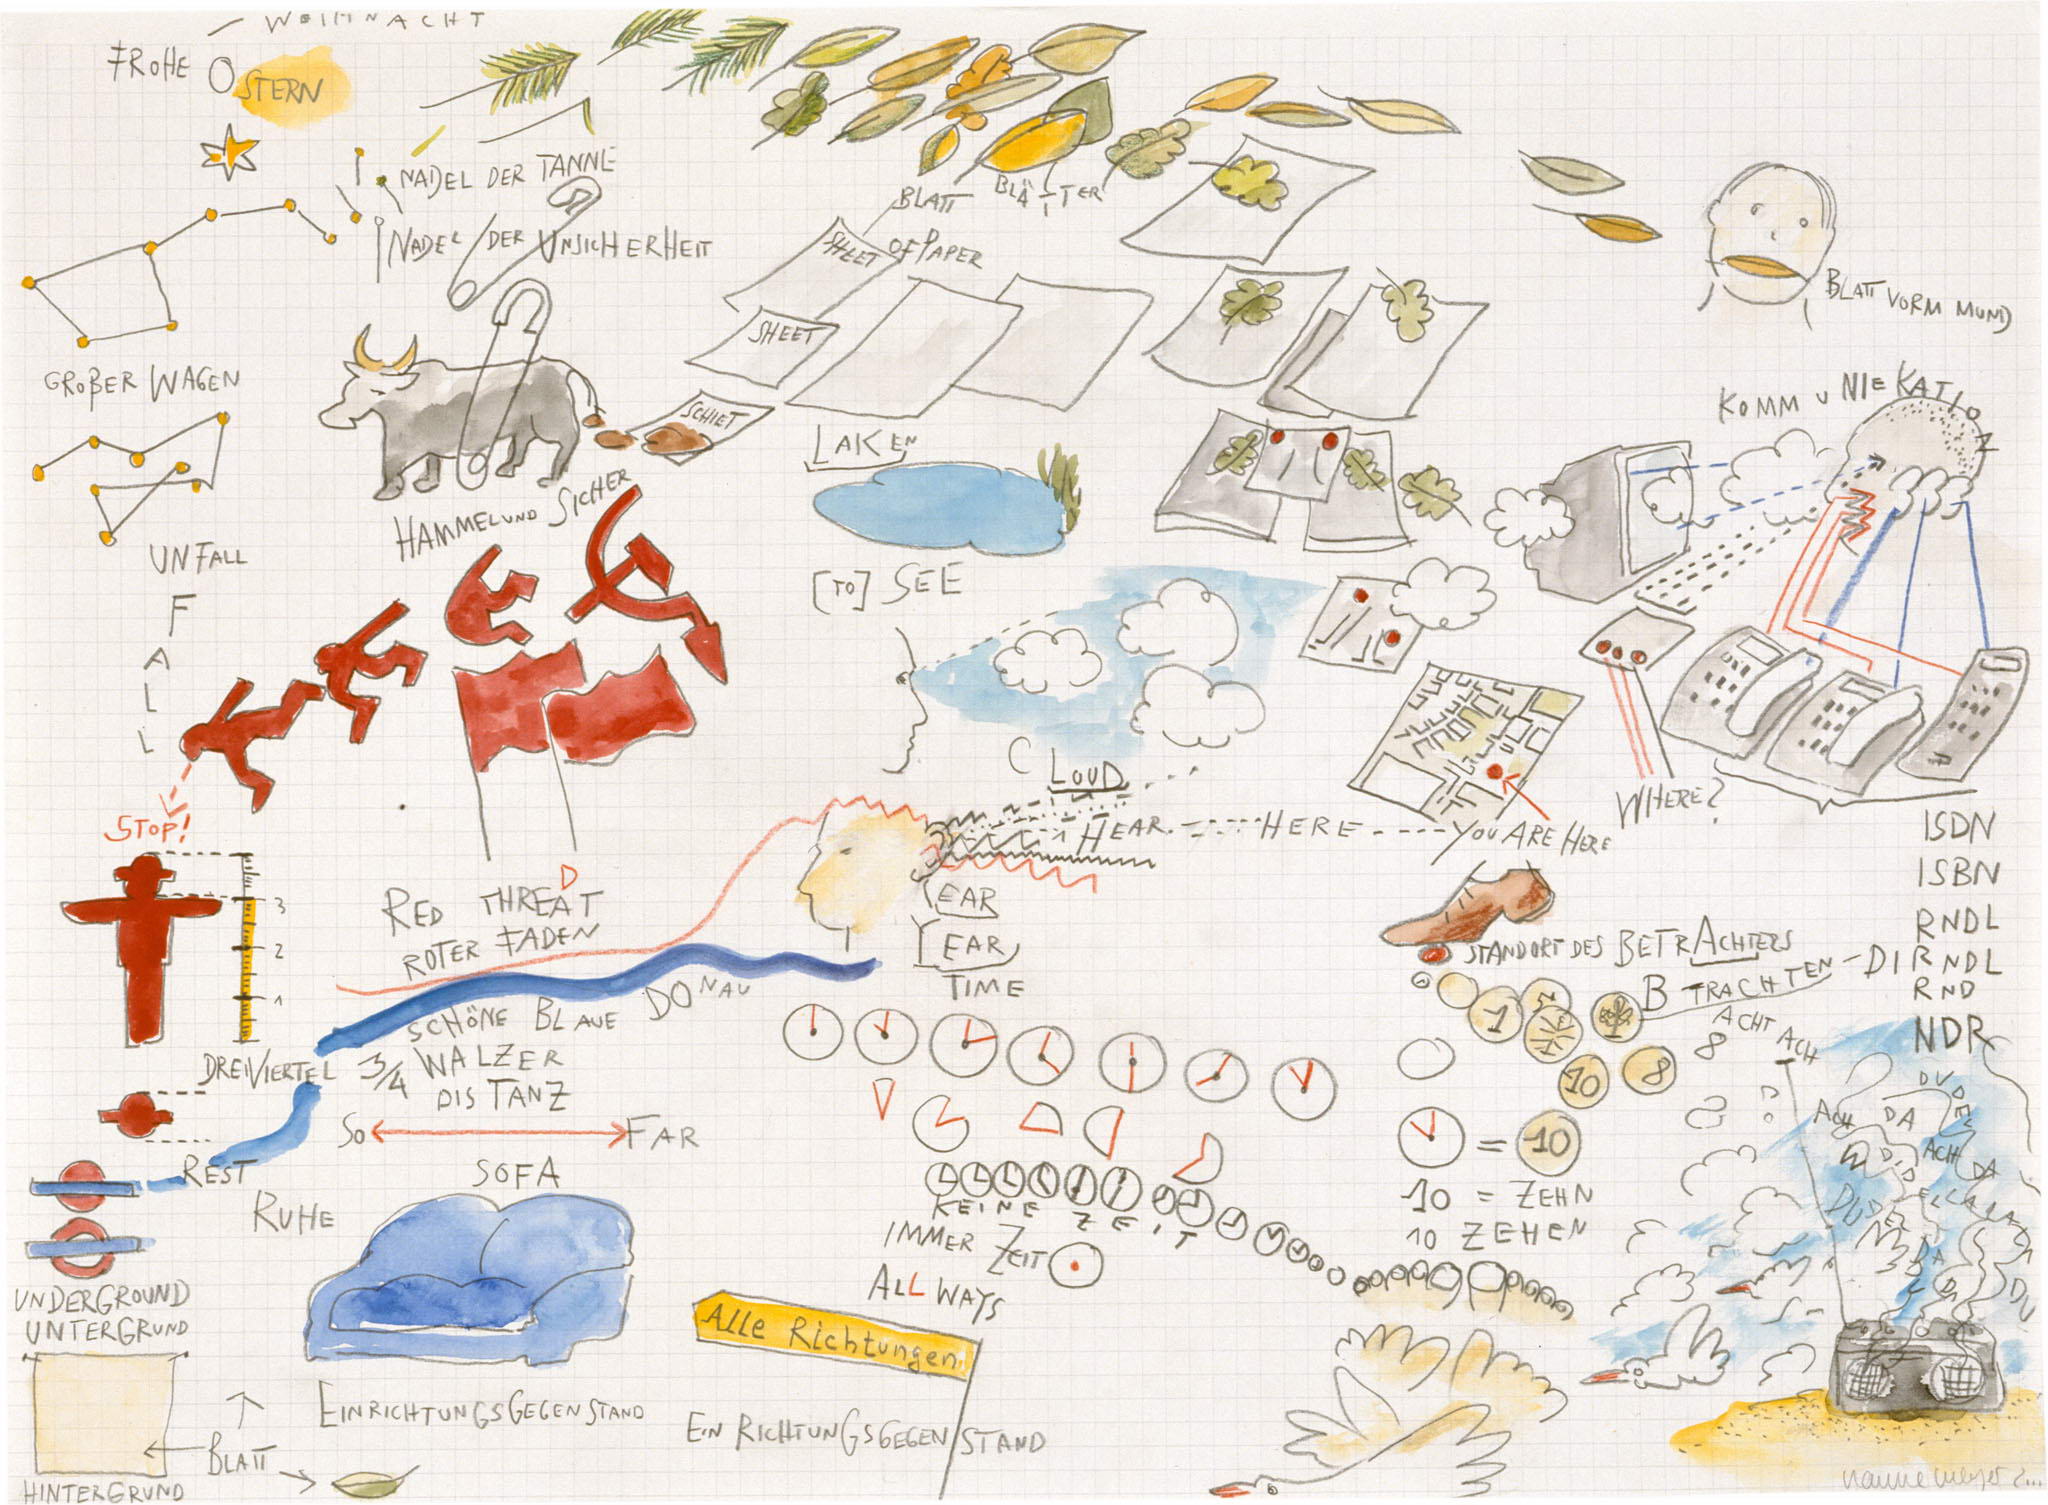 WEIHNACHT
FROHE OSTERN
NADEL DER TANNE
NADEL DER UNSICHERHEIT
BLATT BLÄTTER
SHEET OF PAPER
SHEET
SCHIET
BLATT VORM MUND
GROßER WAGEN
HAMMEL UND SICHER
LAKEN
[TO] SEE
KOMM U NIE KATION
UNFALL
FALL
STOP!
3
2
1
CLOUD
HEAR HERE YOU ARE HERE
WHERE?
ISDN
ISBN
RNDL
DIRNDL
RND
NDR
RED THREAT
D
ROTER FADEN
EAR
EAR
TIME
STANDORT DES BETRACHTERS
B TRACHTEN
ACHT ACH
8
1
5
1
10
8
SCHÖNE BLAUE DONAU
DREIVIERTEL 3/4 WALZER
DISTANZ
SO FAR
SOFA
REST
RUHE
UNDERGROUND
UNTERGRUND
EINRICHTUNGSGEGENSTAND
BLATT
HINTERGRUND
KEINE ZEIT
IMMER ZEIT
ALL WAYS
Alle Richtungen
EIN RICHTUNGSGEGENSTAND
= 10
10 = ZEHN
10 ZEHEN
DUDEL
ACH DA
ACH DA
DUDEL
DA
DU
nanne meyer